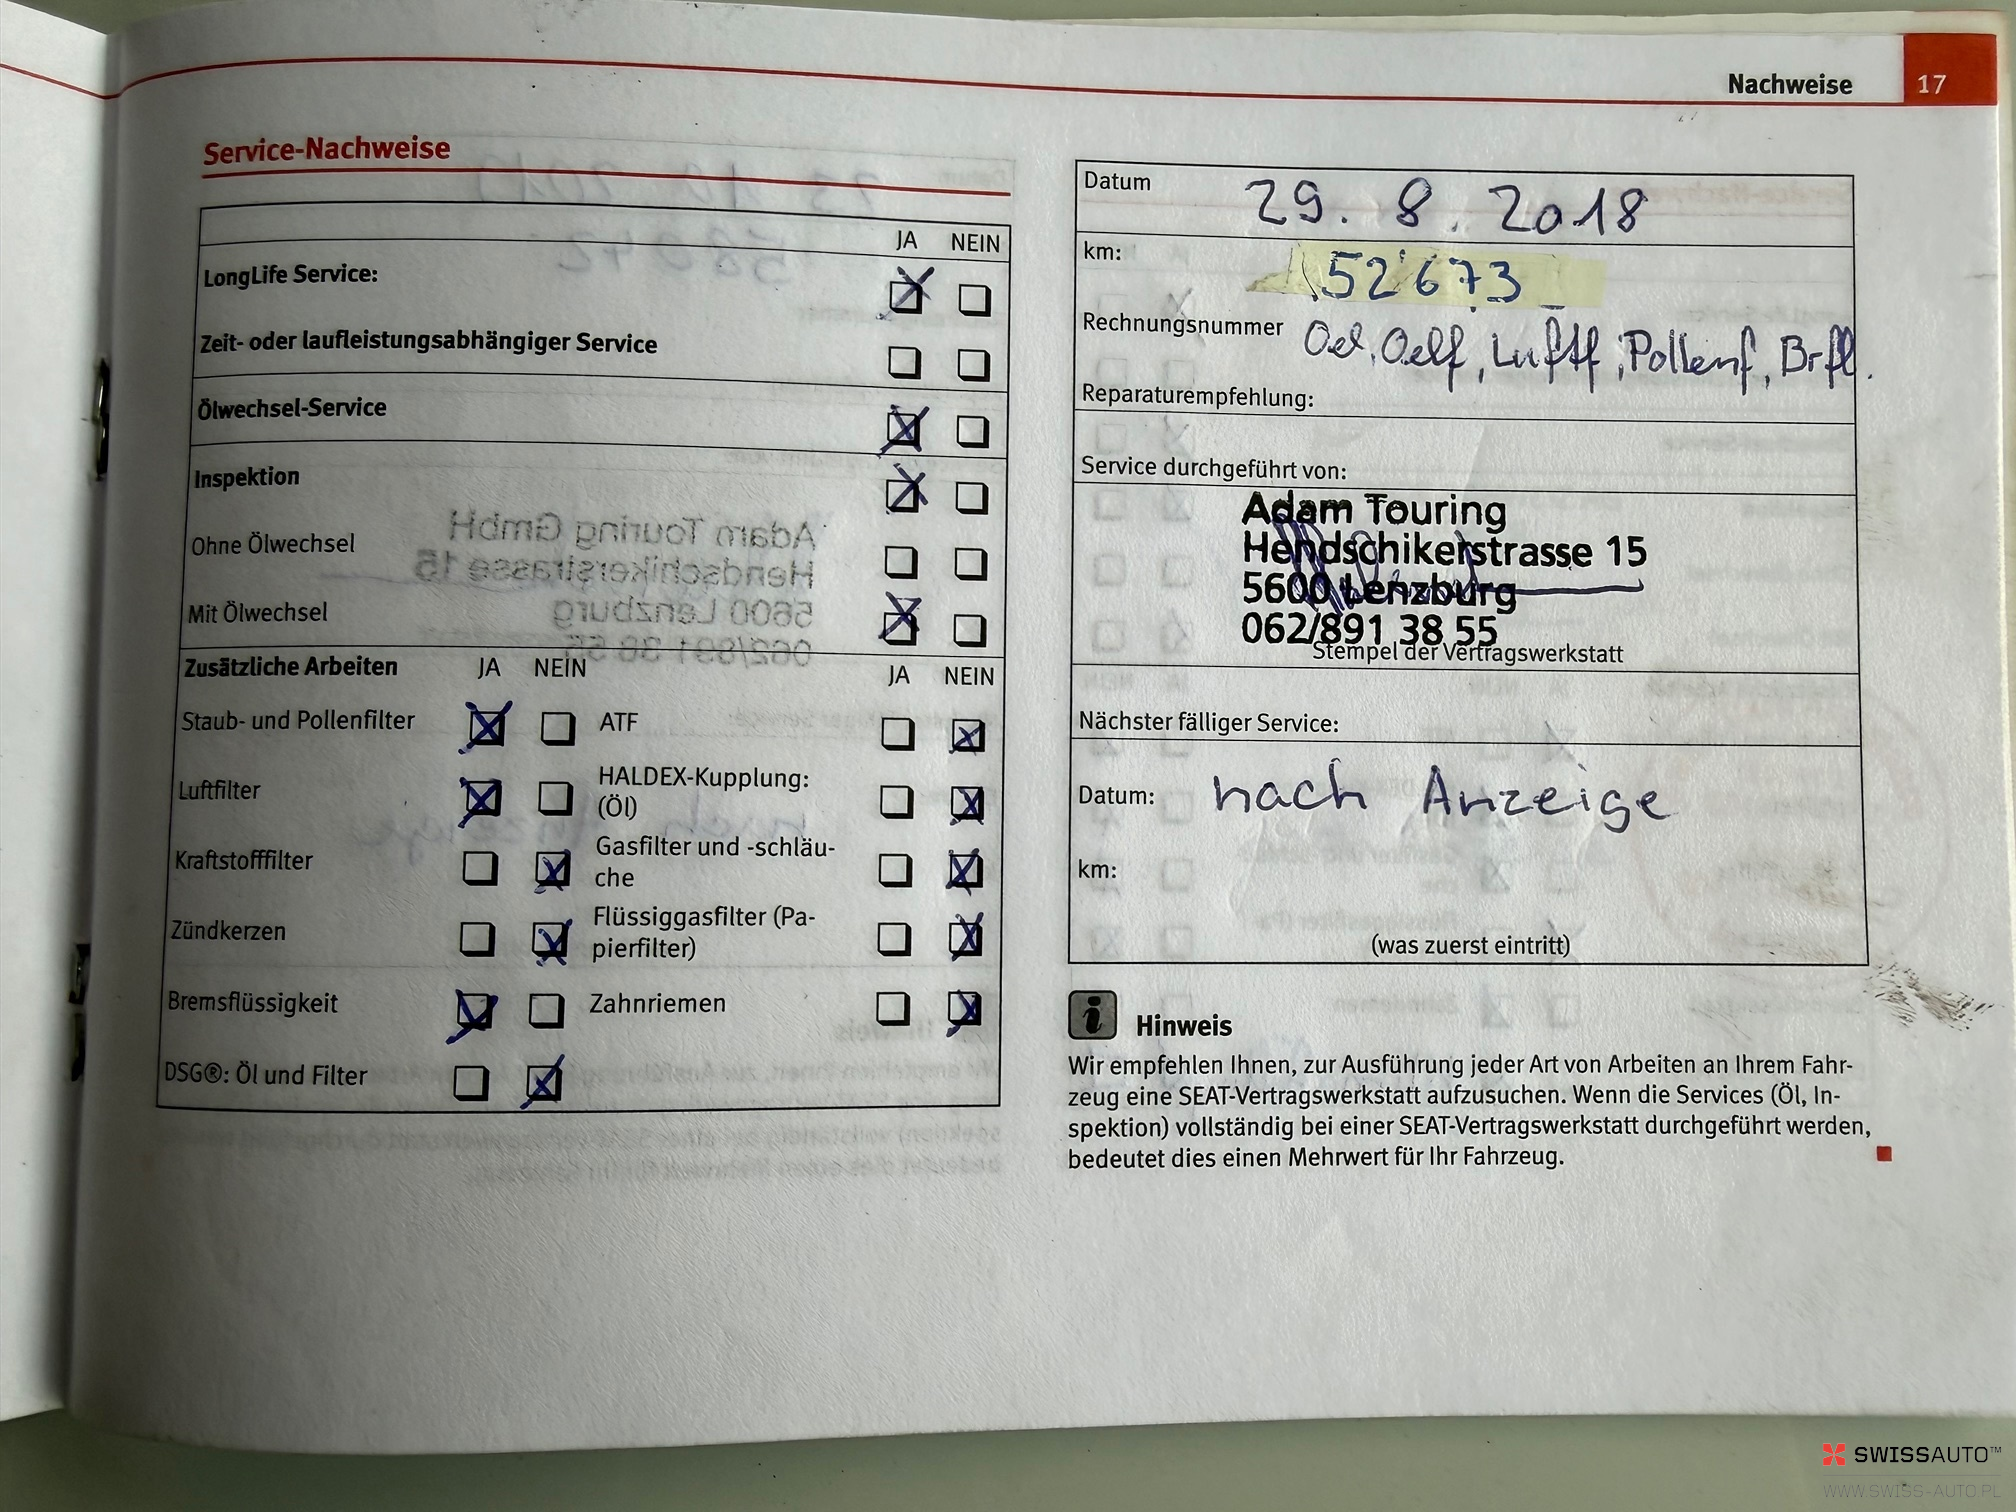 Nachweise 17
Service-Nachweise
JA NEIN
LongLife Service:
Zeit- oder laufleistungsabhängiger Service
Ölwechsel-Service
Inspektion
Ohne Ölwechsel
Mit Ölwechsel
Zusätzliche Arbeiten JA NEIN JA NEIN
Staub- und Pollenfilter ATF
Luftfilter HALDEX-Kupplung:
(Öl)
Kraftstofffilter Gasfilter und -schläu-
che
Zündkerzen Flüssiggasfilter (Pa-
pierfilter)
Bremsflüssigkeit Zahnriemen
DSG®: Öl und Filter
Datum 29. 8. 2018
km: 52673
Rechnungsnummer Oel, Oelf, Luftf, Pollenf, Brfl.
Reparaturempfehlung:
Service durchgeführt von:
Adam Touring
Hendschikerstrasse 15
5600 Lenzburg
062/891 38 55
Stempel der Vertragswerkstatt
Nächster fälliger Service:
Datum: nach Anzeige
km:
(was zuerst eintritt)
Hinweis
Wir empfehlen Ihnen, zur Ausführung jeder Art von Arbeiten an Ihrem Fahr-
zeug eine SEAT-Vertragswerkstatt aufzusuchen. Wenn die Services (Öl, In-
spektion) vollständig bei einer SEAT-Vertragswerkstatt durchgeführt werden,
bedeutet dies einen Mehrwert für Ihr Fahrzeug.
SWISSAUTO™
WWW.SWISS-AUTO.PL